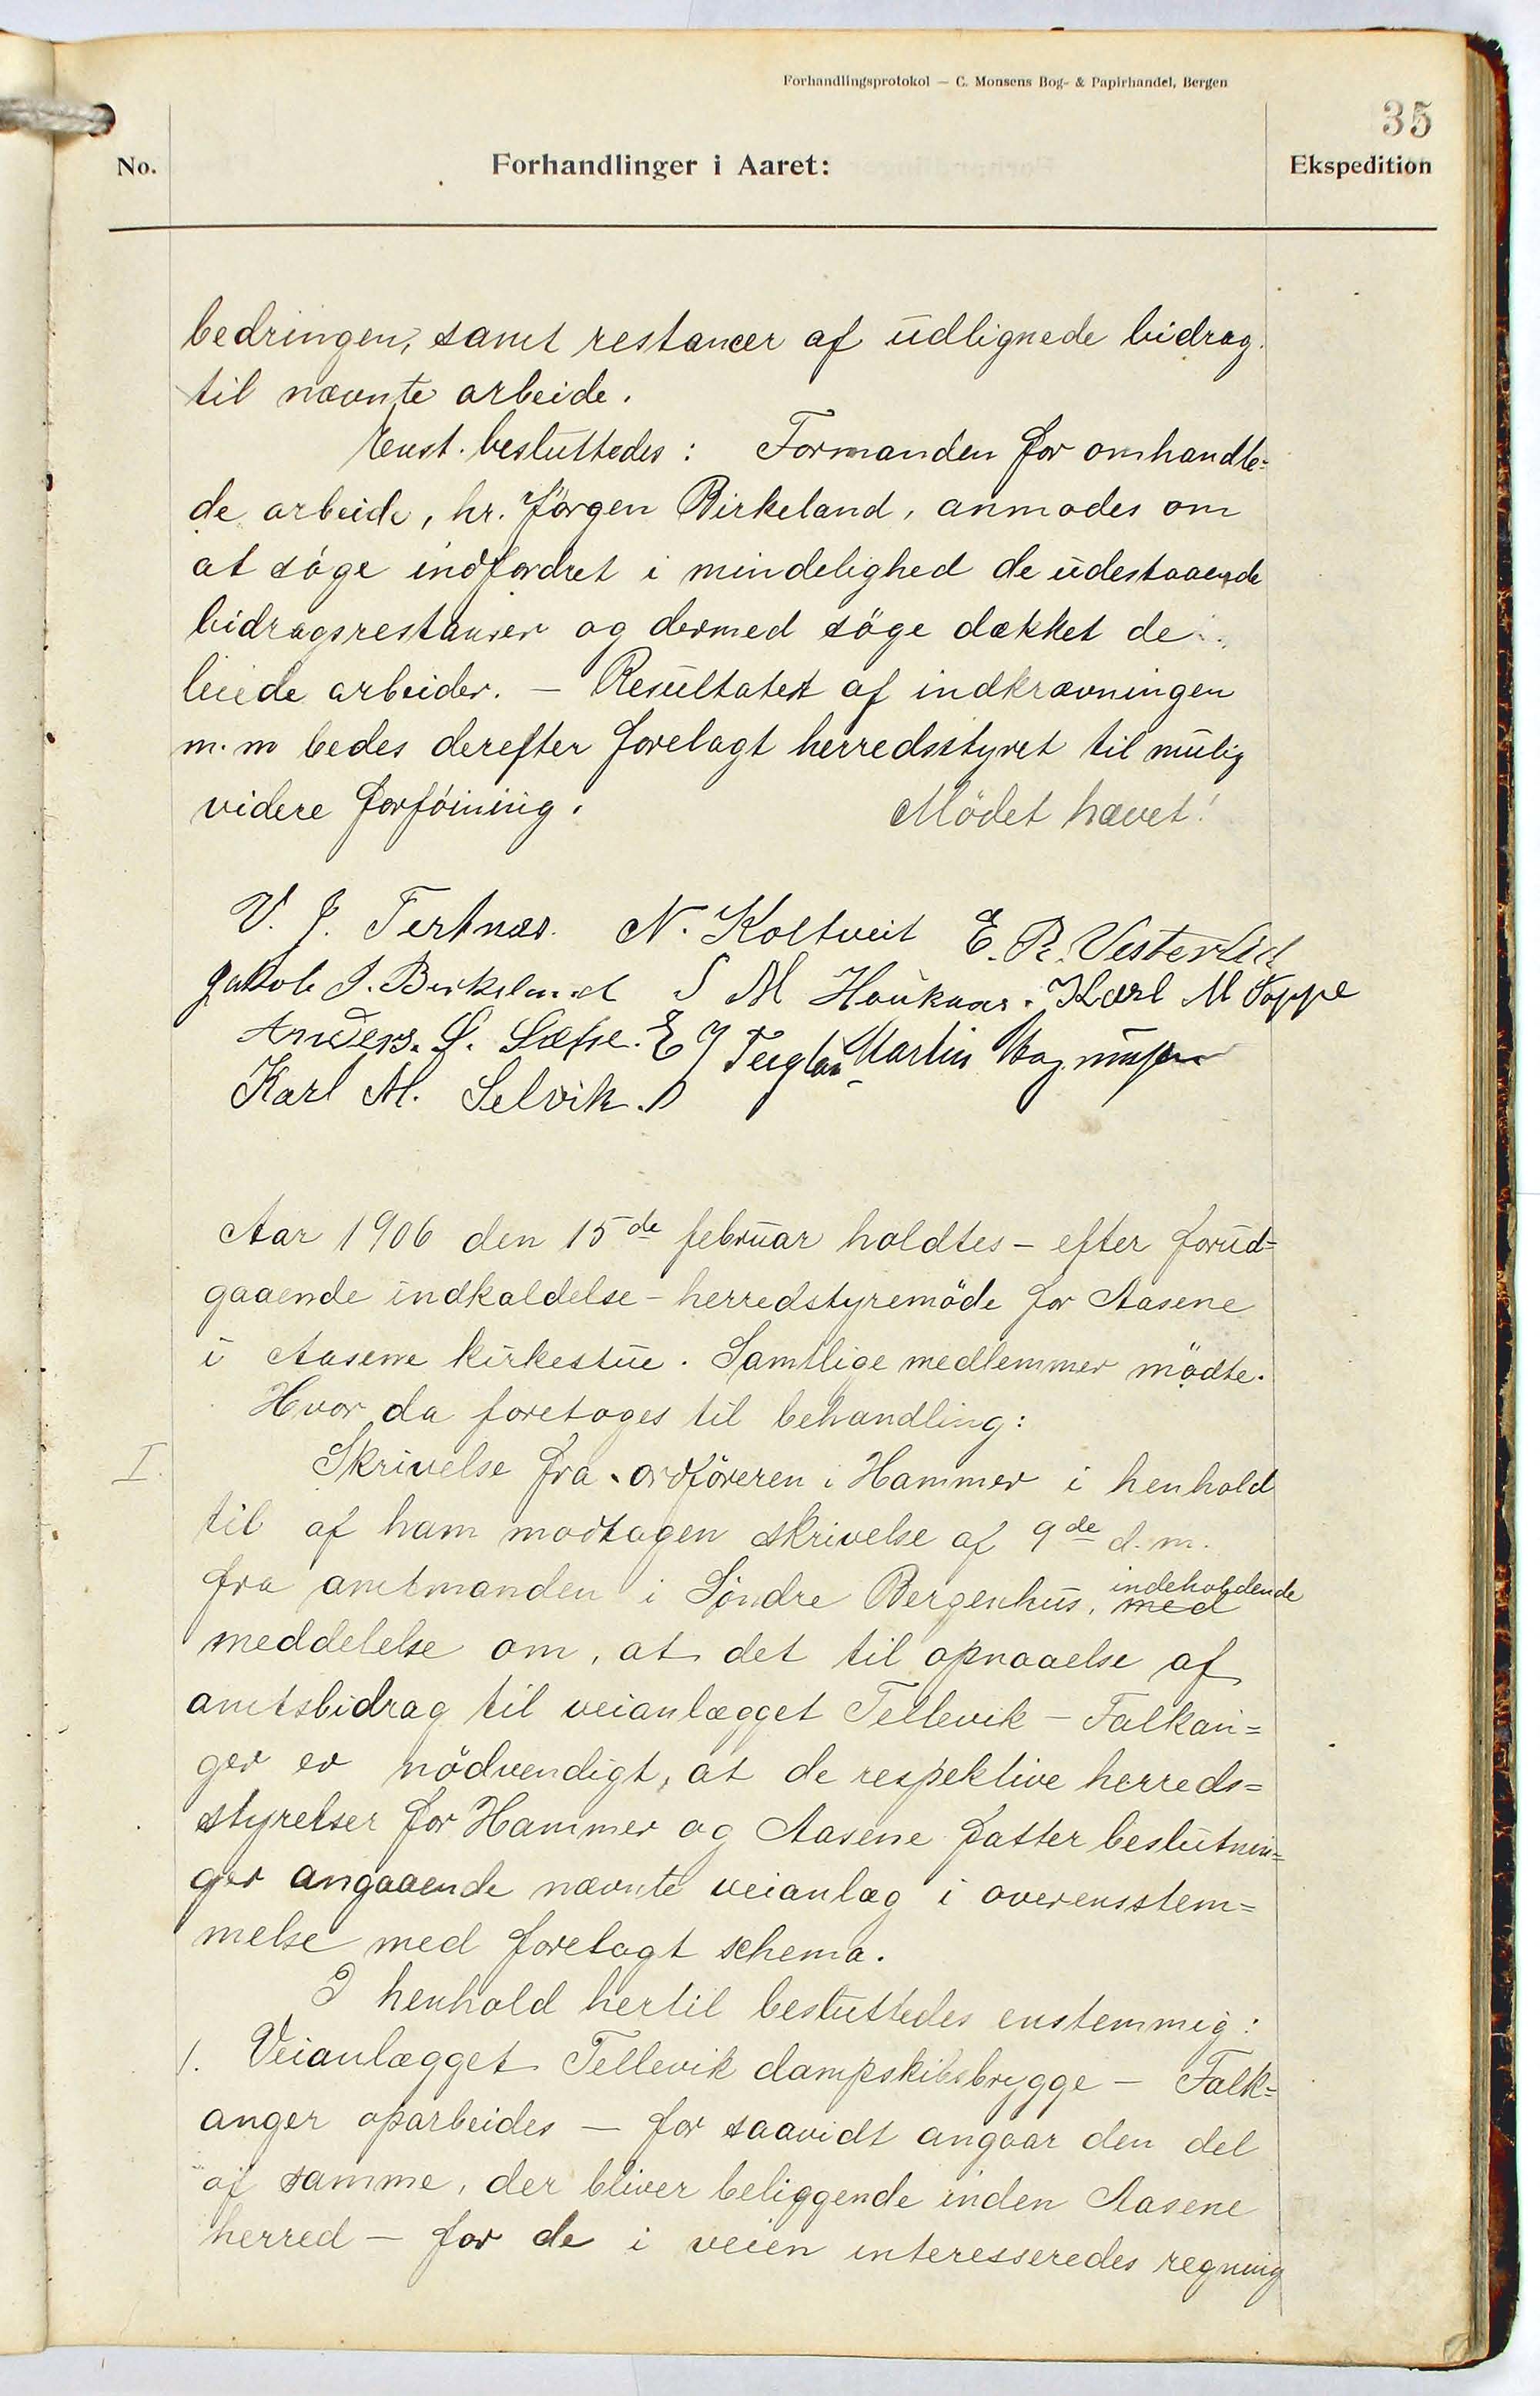 Forhandlingsprotokol — C. Monsens Bog- & Papirhandel, Bergen
35
No. Forhandlinger i Aaret: Ekspedition
bedringen, samt restancer af udlignede bidrag
til nævnte arbeide.
Enst. besluttedes: Formanden for omhandle=
de arbeide, hr. Jörgen Birkeland, anmodes om
at söge indfordret i mindelighed de udestaaende
bidragsrestanser og dermed söge dækket de
leiede arbeider. — Resultatet af indkrævningen
m.m bedes derefter forelagt herredsstyret til mulig
videre forföining. Mödet hævet!
V. J. Tertnæs. N. Koltveit E. R. Vesterlid
Jakob J. Birkeland S M Haukaas. Karl M Toppe
Anders. S. E J Teiglan Martin Magnussen
Karl M. Selvik.
Aar 1906 den 15de februar holdtes – efter forud=
gaaende indkaldelse – herredstyremöde for Aasene
i Aasene kirkestue. Samtlige medlemmer mödte.
Hvor da foretoges til behandling:
I. Skrivelse fra ordföreren i Hammer i henhold
til af ham modtagen skrivelse af 9de d.m.
fra amtmanden i Söndre Bergenhus, med indeholdende
meddelelse om, at det til opnaaelse af
amtsbidrag til veianlægget Tellevik – Falkan=
ger er nödvendigt, at de respektive herreds=
styrelser for Hammer og Aasene fatter beslutnin=
ger angaaende nævnte veianlæg i overensstem=
melse med forelagt schema.
I henhold hertil besluttedes enstemmig:
1. Veianlægget Tellevik dampskibsbrygge – Falk=
anger oparbeides — for saavidt angaar den del
af samme, der bliver beliggende inden Aasene
herred — for de i veien interesseredes regning